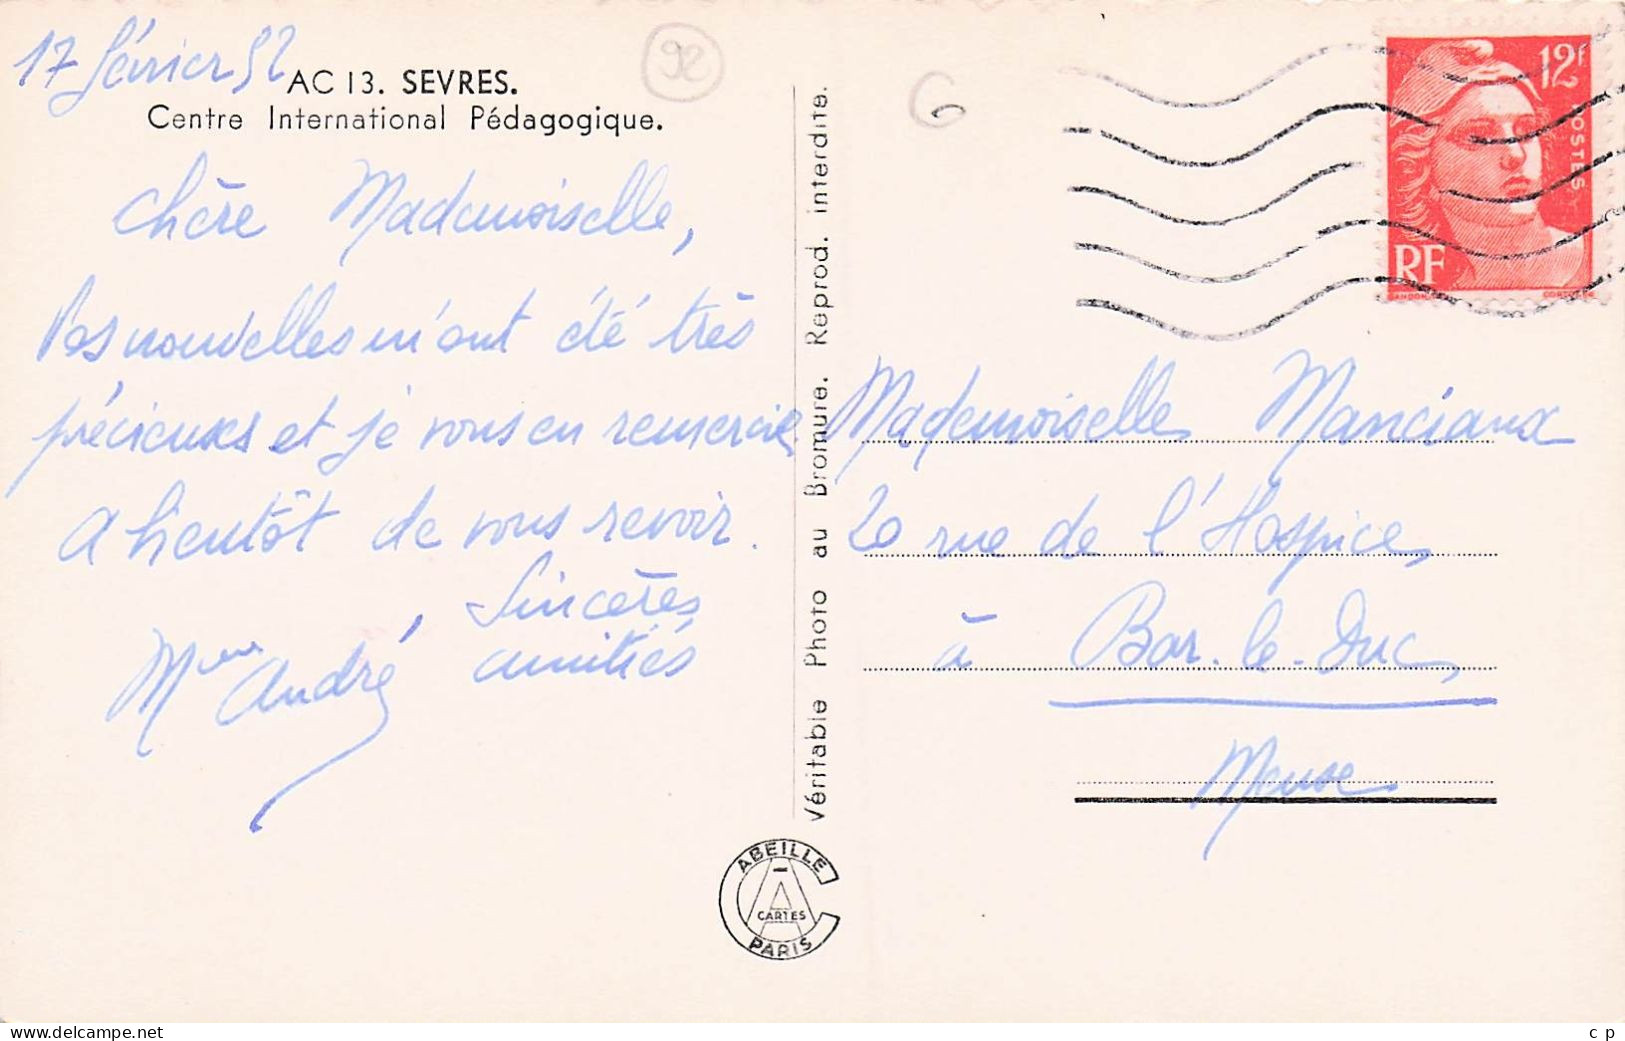 17 février 52
92
AC 13. SEVRES.
Centre International Pédagogique.
Chère Mademoiselle,
Vos nouvelles m'ont été très
précieuses et je vous en remercie
A bientôt de vous revoir.
Sincères
amitiés
Mme André
Véritable Photo au Bromure. Reprod. interdite.
ABEILLE
CARTES
PARIS
G
12F
POSTES
RF
GANDON
Mademoiselle Manciaux
20 rue de l'Hospice,
à Bar-le-Duc,
Meuse
www.delcampe.net
c p